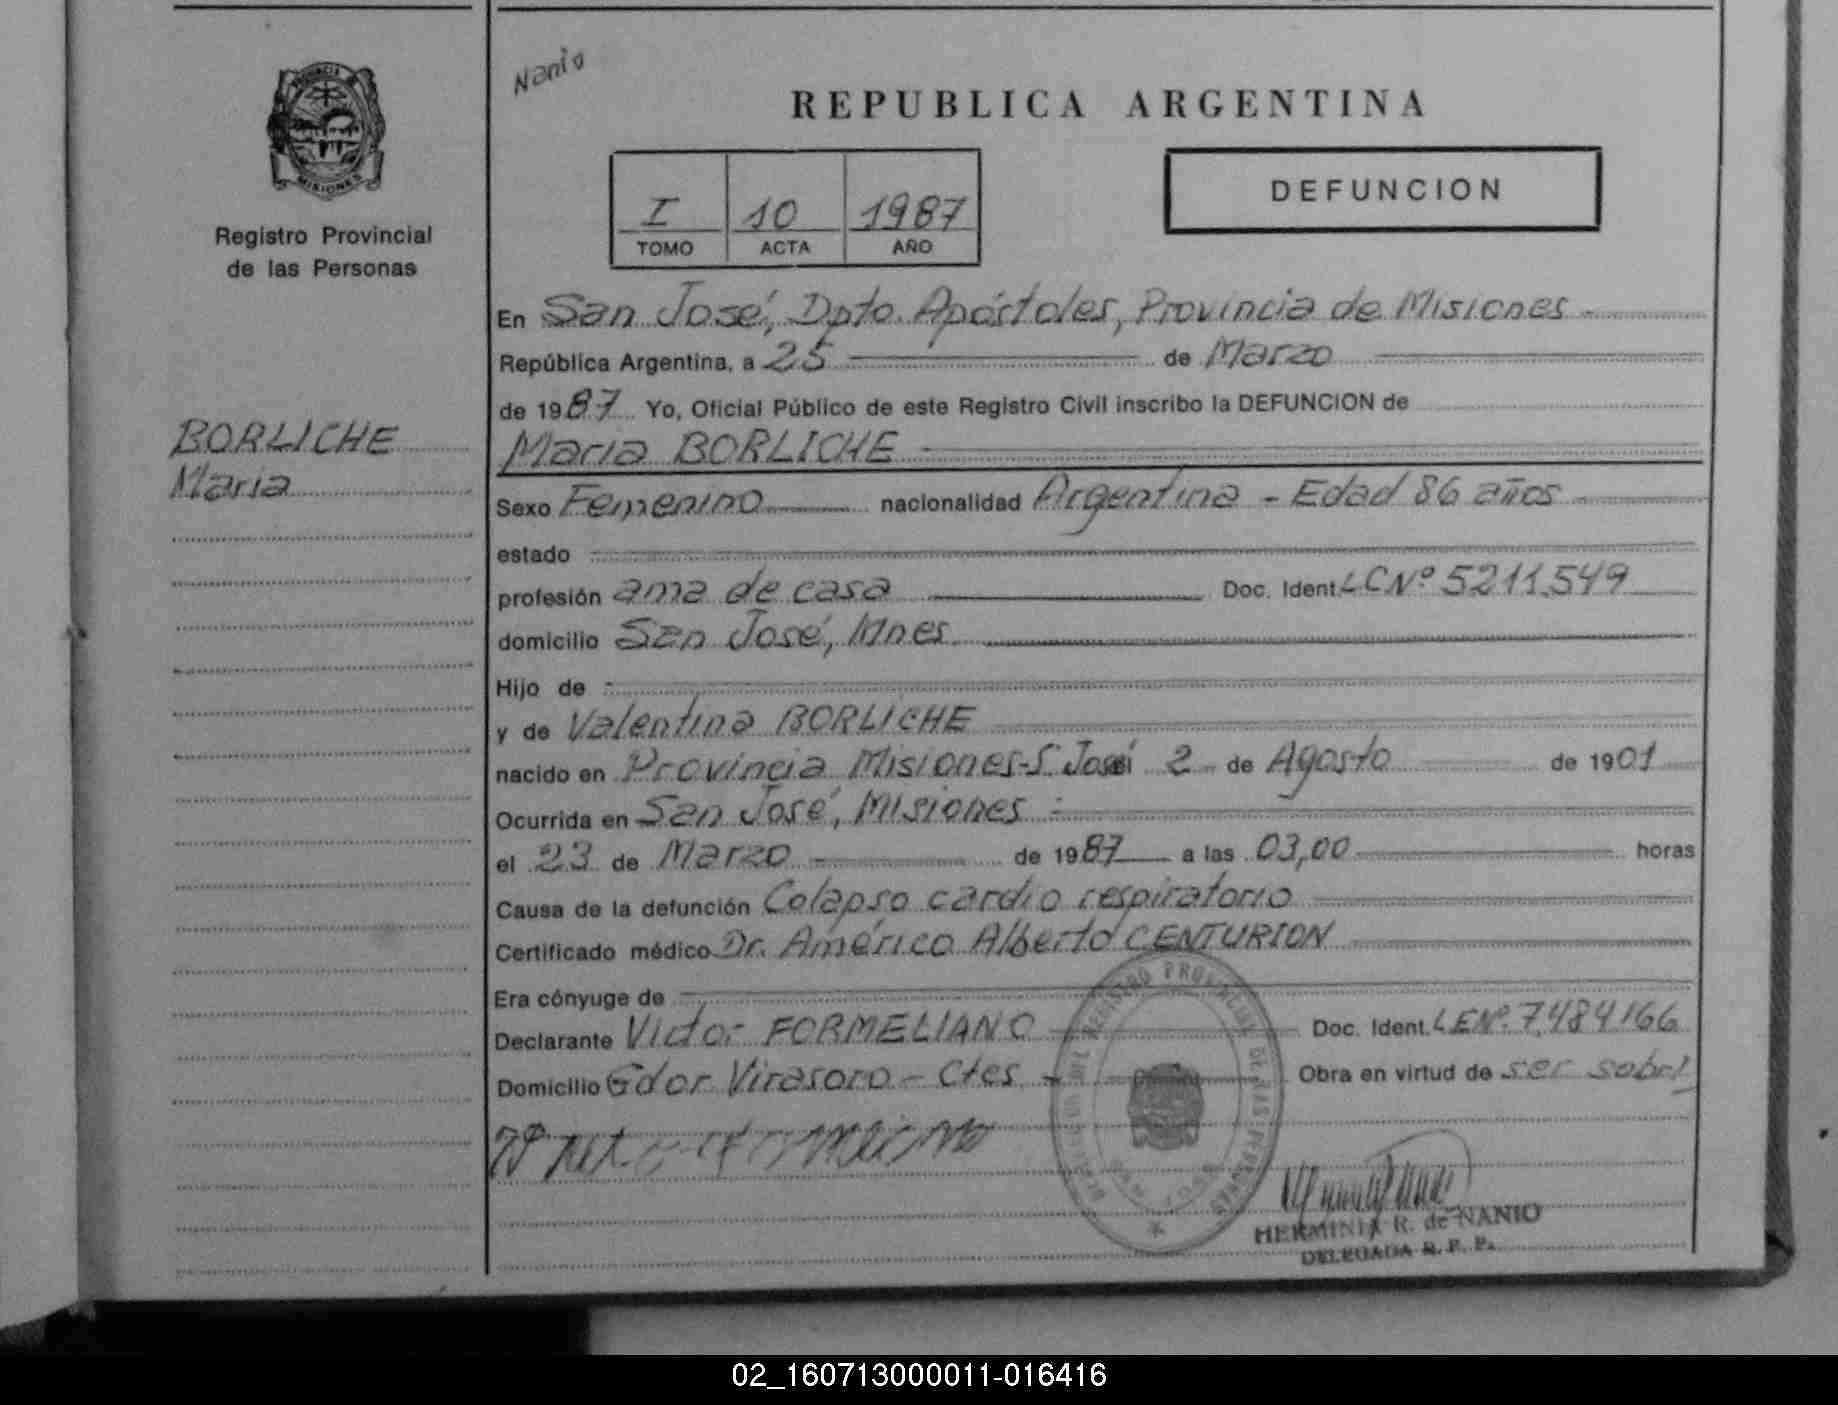 Nanio
REPUBLICA ARGENTINA
PROVINCIA DE
MISIONES
Registro Provincial
de las Personas
I 10 1987
TOMO ACTA AÑO
DEFUNCION
BORLICHE
Maria
En San José, Dpto. Apóstoles, Provincia de Misiones -
República Argentina, a 25 de Marzo
de 1987 Yo, Oficial Público de este Registro Civil inscribo la DEFUNCION de
Maria BORLICHE
Sexo Femenino nacionalidad Argentina - Edad 86 años
estado
profesión ama de casa Doc. Ident. LC Nº 5211.549
domicilio San José, Mnes
Hijo de
y de Valentina BORLICHE
nacido en Provincia Misiones-S. José 2 - de Agosto de 1901
Ocurrida en San José, Misiones -
el 23 de Marzo de 1987 a las 03,00 horas
Causa de la defunción Colapso cardio respiratorio
Certificado médico Dr. Américo Alberto CENTURION
Era cónyuge de
Declarante Victor FORMELIANO Doc. Ident. LE Nº 7.484166
Domicilio Gdor Virasoro - Ctes - Obra en virtud de ser sobr.
REGISTRO PROVINCIAL DE LAS PERSONAS
HERMINIA R. de NANIO
DELEGADA R. P. P.
02_160713000011-016416